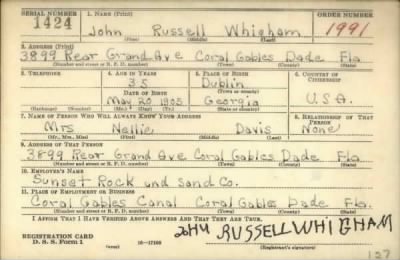 SERIAL NUMBER 1. NAME (Print) ORDER NUMBER
1424 John Russell Whigham 1991
(First) (Middle) (Last)
2. ADDRESS (Print)
3899 Rear Grand Ave Coral Gables Dade Fla.
(Number and street or R. F. D. number) (Town) (County) (State)
3. TELEPHONE 4. AGE IN YEARS 5. PLACE OF BIRTH 6. COUNTRY OF CITIZENSHIP
35 Dublin
DATE OF BIRTH (Town or county)
May 20, 1905 Georgia U.S.A.
(Exchange) (Number) (Mo.) (Day) (Yr.) (State or country)
7. NAME OF PERSON WHO WILL ALWAYS KNOW YOUR ADDRESS 8. RELATIONSHIP OF THAT PERSON
Mrs Nellie Davis None
(Mr., Mrs., Miss) (First) (Middle) (Last)
9. ADDRESS OF THAT PERSON
3899 Rear Grand Ave Coral Gables Dade Fla.
(Number and street or R. F. D. number) (Town) (County) (State)
10. EMPLOYER'S NAME
Sunset Rock and Sand Co.
11. PLACE OF EMPLOYMENT OR BUSINESS
Coral Gables Canal Coral Gables Dade Fla.
(Number and street or R. F. D. number) (Town) (County) (State)
I AFFIRM THAT I HAVE VERIFIED ABOVE ANSWERS AND THAT THEY ARE TRUE.
JOHN RUSSELL WHIGHAM
REGISTRATION CARD
D. S. S. Form 1 (over) (Registrant's signature)
127